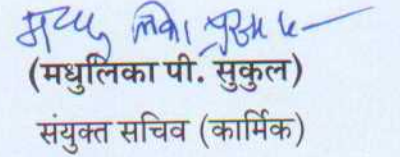 (मधुलिका पी. सुकुल)
संयुक्त सचिव (कार्मिक)